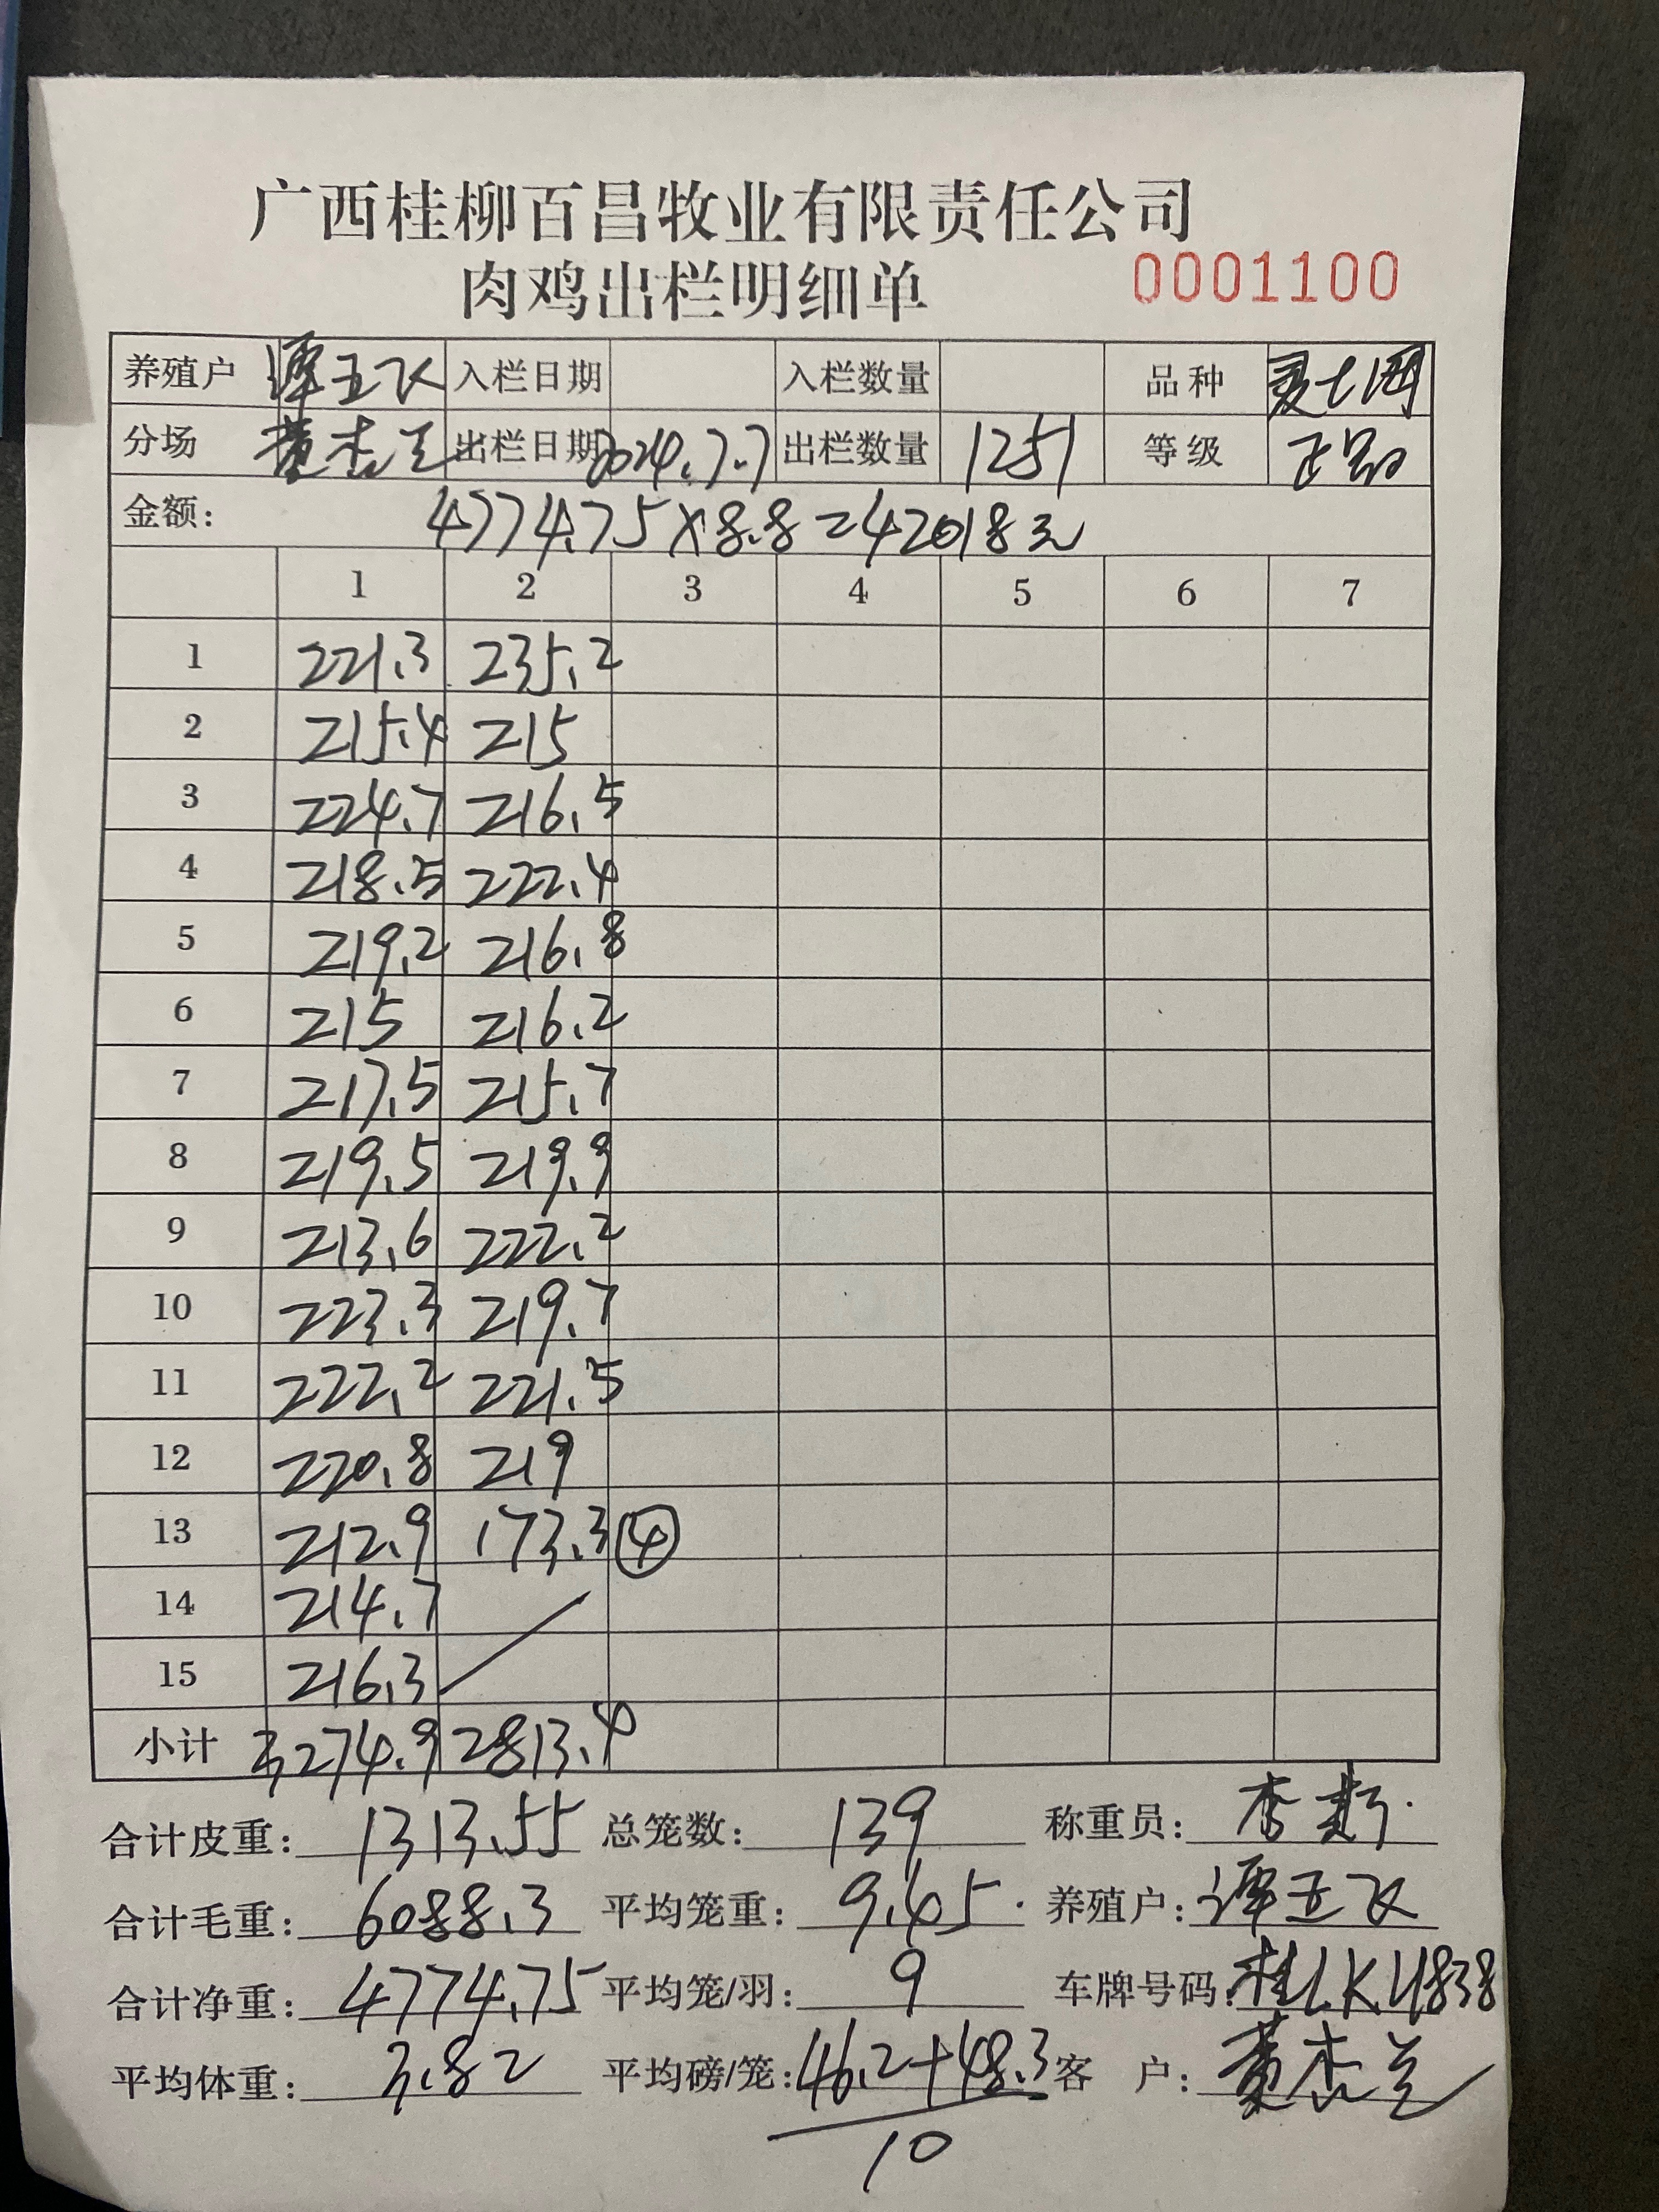 广西桂柳百昌牧业有限责任公司
肉鸡出栏明细单 0001100
养殖户 谭五飞 入栏日期 入栏数量 品种
分场 黄杰兰 出栏日期 2024.7.7 出栏数量 1251 等级 正品
金额: 4774.75×8.8=42018元
1 2 3 4 5 6 7
1 221.3 235.2
2 215.4 215
3 224.7 216.5
4 218.5 222.4
5 219.2 216.8
6 215 216.2
7 217.5 215.7
8 219.5 219.9
9 213.6 222.2
10 223.3 219.7
11 222.2 221.5
12 220.8 219
13 212.9 173.3 ④
14 214.7
15 216.3
小计 3274.9 2813.4
合计皮重: 1313.55 总笼数: 139 称重员: 李
合计毛重: 6088.3 平均笼重: 9.45 养殖户: 谭五飞
合计净重: 4774.75 平均笼/羽: 9 车牌号码: 桂L.K4838
平均体重: 3.82 平均磅/笼: 46.2+48.3 客 户: 黄杰兰
10